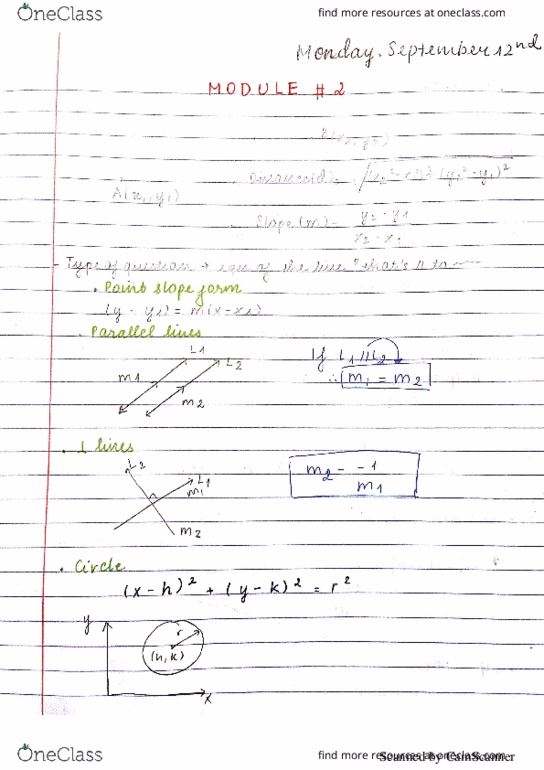 OneClass
find more resources at oneclass.com
Monday, September 12nd
MODULE #2
A(x1, y1)
Distance(d) =
Slope(m) = y2 - y1
x2 - x1
- Type of question → eqn of the line that's
• Point slope form
(y - y1) = m(x - x1)
• Parallel lines
L1
L2
m1
m2
If L1 // L2
∴ m1 = m2
• ⊥ lines
L2
L1
m1
m2
m2 = -1
m1
• Circle
(x-h)² + (y-k)² = r²
y
r
(h,k)
x
OneClass
find more resources at oneclass.com
Scanned by CamScanner